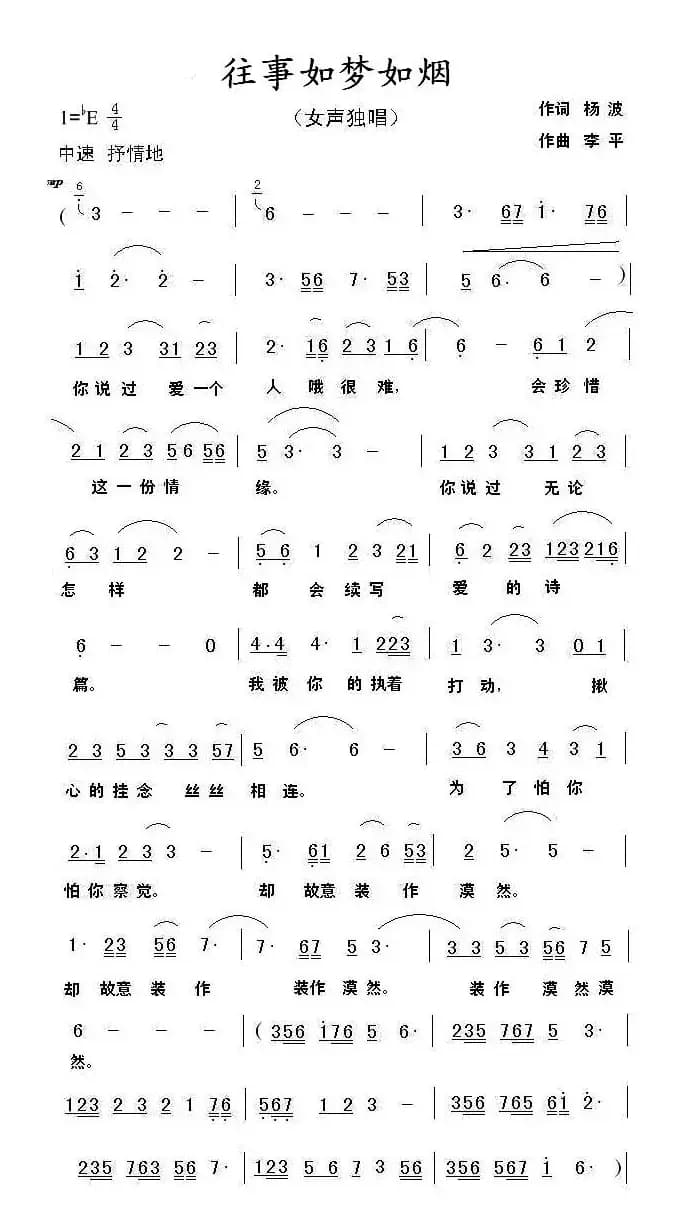 往事如梦如烟
1=♭E 4/4
（女声独唱）
作词 杨波
作曲 李平
中速 抒情地
mp
( 6 3 - - - | 2 6 - - - | 3· 67 i· 76 |
i 2· 2 - | 3· 56 7· 53 | 5 6· 6 - ) |
1 2 3 31 23 | 2· 16 2 3 1 6 | 6 - 6 1 2 |
你说过 爱一个 人哦很难， 会珍惜
2 1 2 3 5 6 56 | 5 3· 3 - | 1 2 3 3 1 2 3 |
这一份情 缘。 你说过 无论
6 3 1 2 2 - | 5 6 1 2 3 21 | 6 2 23 123 216 |
怎 样 都 会 续写 爱 的 诗
6 - - 0 | 4·4 4· 1 223 | 1 3· 3 0 1 |
篇。 我被 你 的执着 打动， 揪
2 3 5 3 3 3 57 | 5 6· 6 - | 3 6 3 4 3 1 |
心的挂念 丝丝 相连。 为 了 怕你
2·1 2 3 3 - | 5· 61 2 6 53 | 2 5· 5 - |
怕你察觉。 却 故意 装 作 漠 然。
1· 23 56 7· | 7· 67 5 3· | 3 3 5 3 56 7 5 |
却 故意 装 作 装作 漠 然。 装作 漠 然漠
6 - - - | ( 356 i76 5 6· | 235 767 5 3· |
然。
123 2 3 2 1 76 | 567 1 2 3 - | 356 765 61 2· |
235 763 56 7· | 123 5 6 7 3 56 | 356 567 i 6· )